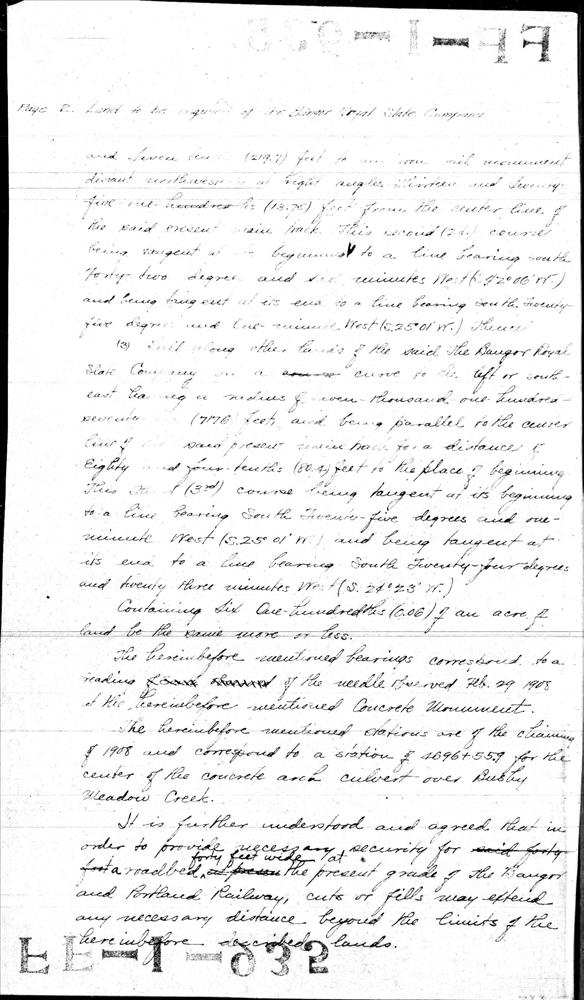 Page 2. Land to be acquired of the Bangor Royal Slate Company
and Seven tenths (219.7) feet to an iron rail monument
distant northwesterly at right angles thirteen and seventy-
five-one-hundredths (13.75) feet from the center line of
the said present main track. This second (2d.) course
being tangent at its beginning to a line bearing South
Forty-two degrees and six minutes West (S. 42° 06' W.)
and being tangent at its end to a line bearing South Twenty-
five degrees and One-minute West (S. 25° 01' W.) Thence
(3) Still along other lands of the said The Bangor Royal
Slate Company on a curve to the left or south-
east having a radius of seven-thousand one-hundred-
seventy (7176) feet, and being parallel to the center
line of the said present main track for a distance of
Eighty and four-tenths (80.4) feet to the place of beginning
This third (3rd) course being tangent at its beginning
to a line bearing South Twenty-five degrees and one-
minute West (S. 25° 01' W.) and being tangent at
its end to a line bearing South Twenty-four degrees
and twenty three minutes West (S. 24° 23' W.)
Containing Six One-hundredths (0.06) of an acre of
land be the same more or less.
The hereinbefore mentioned bearings correspond to a
reading of the needle observed Feb. 29 1908
at the hereinbefore mentioned Concrete Monument.
The hereinbefore mentioned stations are of the chaining
of 1908 and correspond to a station of 4696+55.9 for the
center of the concrete arch culvert over Bushy
Meadow Creek.
It is further understood and agreed that in
order to provide necessary security for said forty
foot a roadbed, forty feet wide at the present grade of the Bangor
and Portland Railway, cuts or fills may extend
any necessary distance beyond the limits of the
hereinbefore described lands.